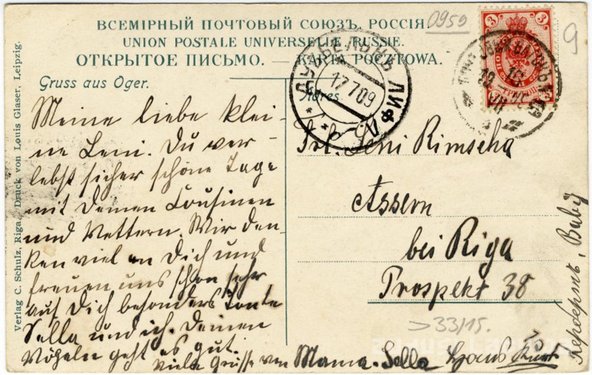 ВСЕМІРНЫЙ ПОЧТОВЫЙ СОЮЗЪ. РОССІЯ
UNION POSTALE UNIVERSELLE. RUSSIE.
ОТКРЫТОЕ ПИСЬМО. — КАРТА POCZTOWA.
Gruss aus Oger.
Adres
Verlag C. Schulz, Riga. Druck von Louis Glaser, Leipzig.
0959
9
3
17 7 09
ЛИФЛ.
Meine liebe klei-
ne Leni. Du ver-
lebst sicher schöne Tage
mit Deinen Cousinen
und Vettern. Wir den-
ken viel an Dich und
freuen uns schon sehr
auf Dich besonders Tante
Sella und ich. Deinen
Vögeln geht es gut.
Viele Grüsse von Mama. Sella Hans Kurt
Frl. Leni Rimscha
Assern
bei Riga
Prospekt 38
>33/15.
Baby